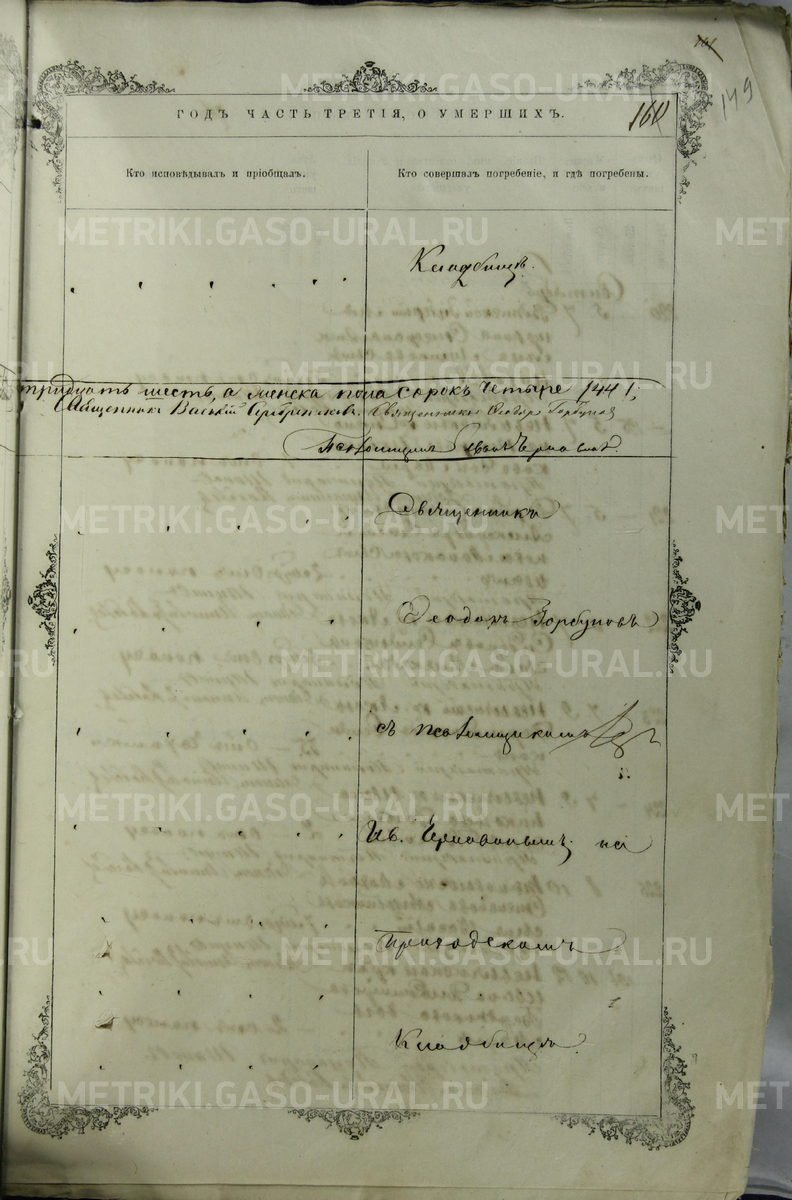 149
ГОДЪ ЧАСТЬ ТРЕТІЯ, О УМЕРШИХЪ.
160
Кто исповѣдывалъ и пріобщалъ.
Кто совершалъ погребеніе, и гдѣ погребены.
Кладбищѣ.
тридцать шесть, а женска пола сорокъ четыре /44/;
Священникъ Василій Серебренниковъ. Священникъ Ѳеодоръ Горбуновъ
Псаломщикъ
Священникъ
Ѳеодоръ Горбуновъ
съ псаломщикомъ
Ив. на
Приходскомъ
Кладбищѣ.
METRIKI.GASO-URAL.RU